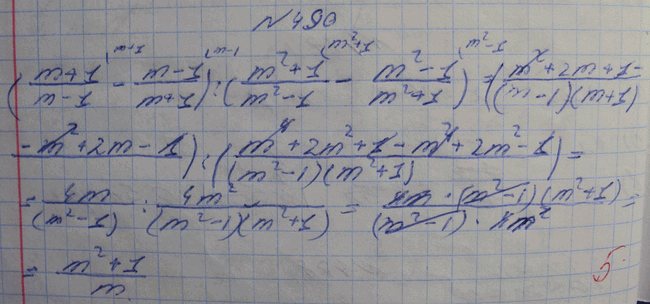 №490
((m+1)/(m-1) ^(m+1) - (m-1)/(m+1) ^(m-1)) : ((m²+1)/(m²-1) ^(m²+1) - (m²-1)/(m²+1) ^(m²-1)) = ((m²+2m+1-)/((m-1)(m+1))
-m²+2m-1) : ((m⁴+2m²+1-m⁴+2m²-1)/((m²-1)(m²+1))) =
= 4m/(m²-1) : 4m²/((m²-1)(m²+1)) = (4m·(m²-1)(m²+1))/((m²-1)·4m²) =
= (m²+1)/m
5